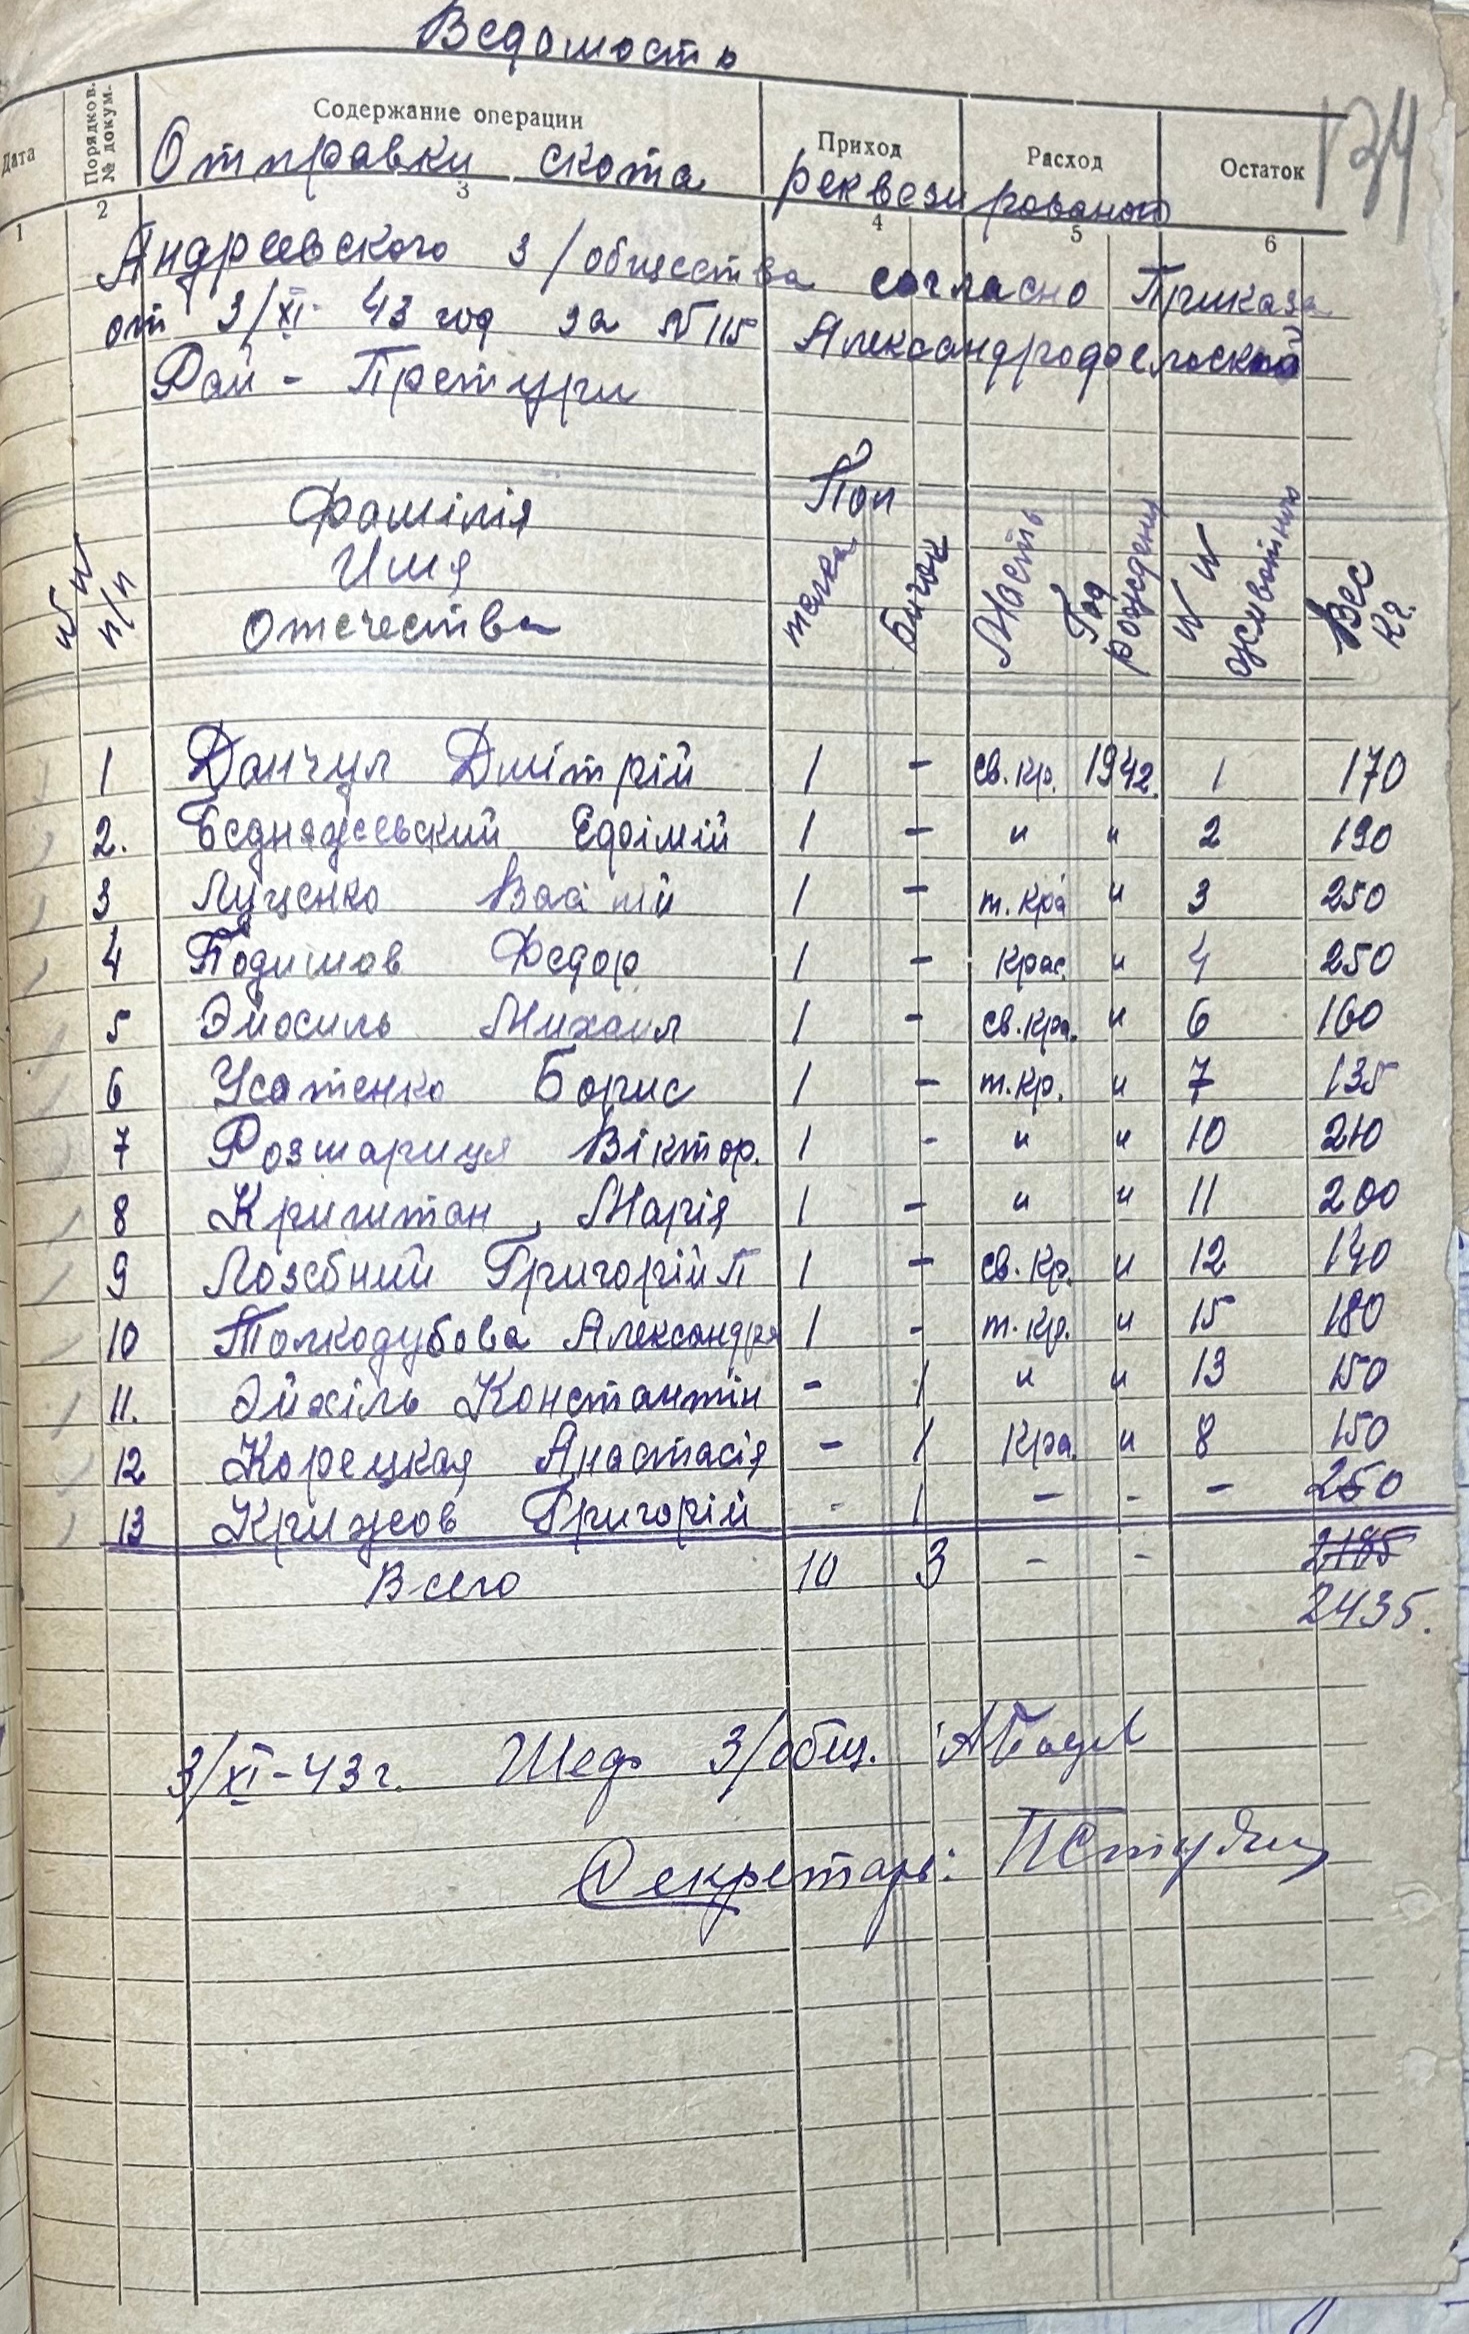 Ведомость
134
Дата Порядков. № докум. Содержание операции Приход Расход Остаток
Отправки скота реквезированого
1 2 3 4 5 6
Андреевского з/общества согласно Приказа
от 3/XI- 43 год за №115 Александродарской
Рай - Претури
№ № п/п Фамілія Имя Отечества Пол телка бычок Масть Год рождения № № животного Вес Кг.
1 Данчул Дмітрій 1 - св. кр. 1942. 1 170
2. Бедняжевский Ефімій 1 - " " 2 190
3 Луценко Васілій 1 - т. кра " 3 250
4 Подимов Федор 1 - крас. " 4 250
5 Эйосиль Михаил 1 - св. кра. " 6 160
6 Усатенко Борис 1 - т. кр. " 7 135
7 Розмариця Віктор. 1 - " " 10 210
8 Криштан Марія 1 - " " 11 200
9 Лозебний Григорій П 1 - св. кр. " 12 140
10 Толкодубова Александра 1 - т. кр. " 15 180
11. Эйхіль Константін - 1 " " 13 150
12 Корецкая Анастасія - 1 Кра. " 8 150
13 Крижов Григорій - 1 - - - 250
Всего 10 3 - - 2185
2435.
3/XI-43г. Шеф з/общ.
Секретарь: